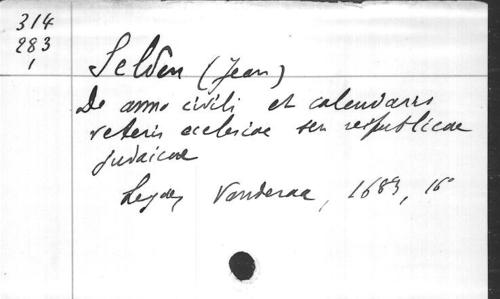 314
283
1
Selden (Jean)
De anno civili et calendaris
veteris ecclesiae seu reipublicae
judaicae
Leyde, Vanderaa, 1683, 16°